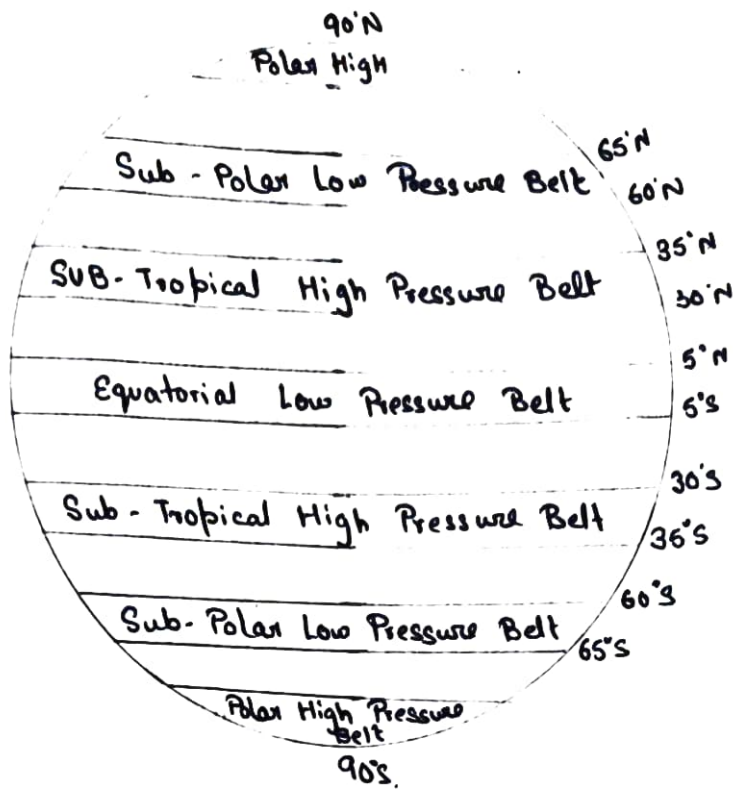 90°N
Polar High
65°N
Sub - Polar Low Pressure Belt
60°N
35°N
SUB - Tropical High Pressure Belt
30°N
5°N
Equatorial Low Pressure Belt
5°S
30°S
Sub - Tropical High Pressure Belt
35°S
60°S
Sub - Polar Low Pressure Belt
65°S
Polar High Pressure
Belt
90°S.